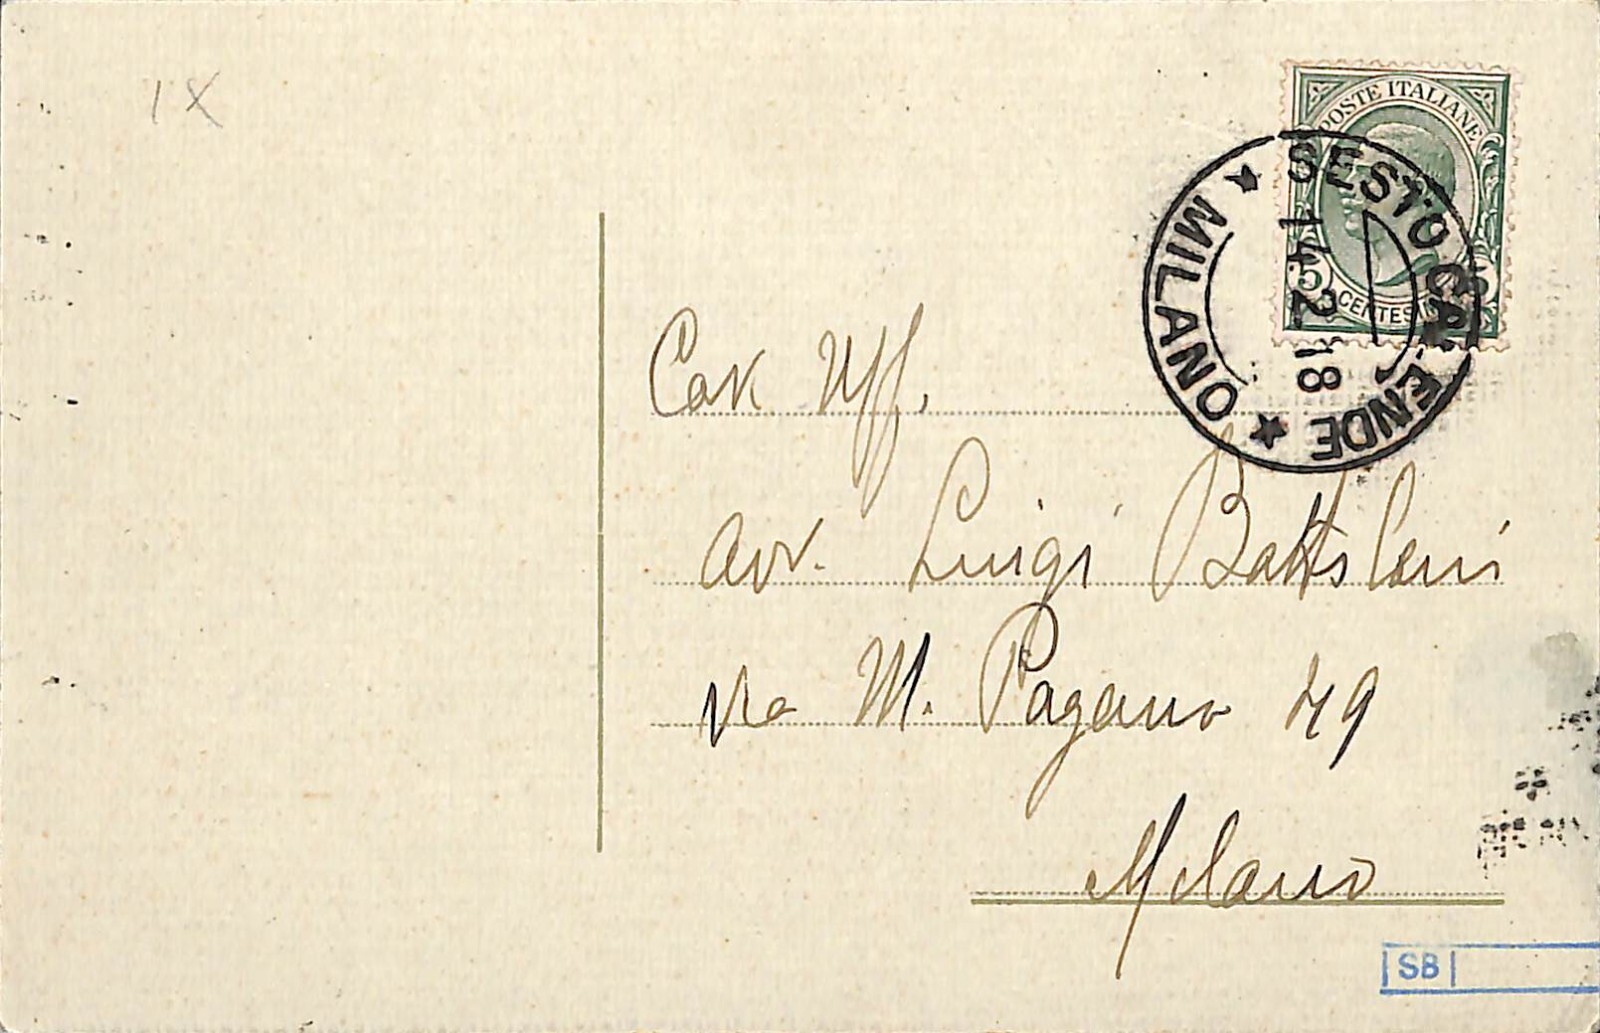 1X
POSTE ITALIANE
5 CENTESIMI 5
SESTO CALENDE
14.2.18
★ MILANO ★
Cav. Uff.
avv. Luigi Battolani
via M. Pagano 49
Milano
SB